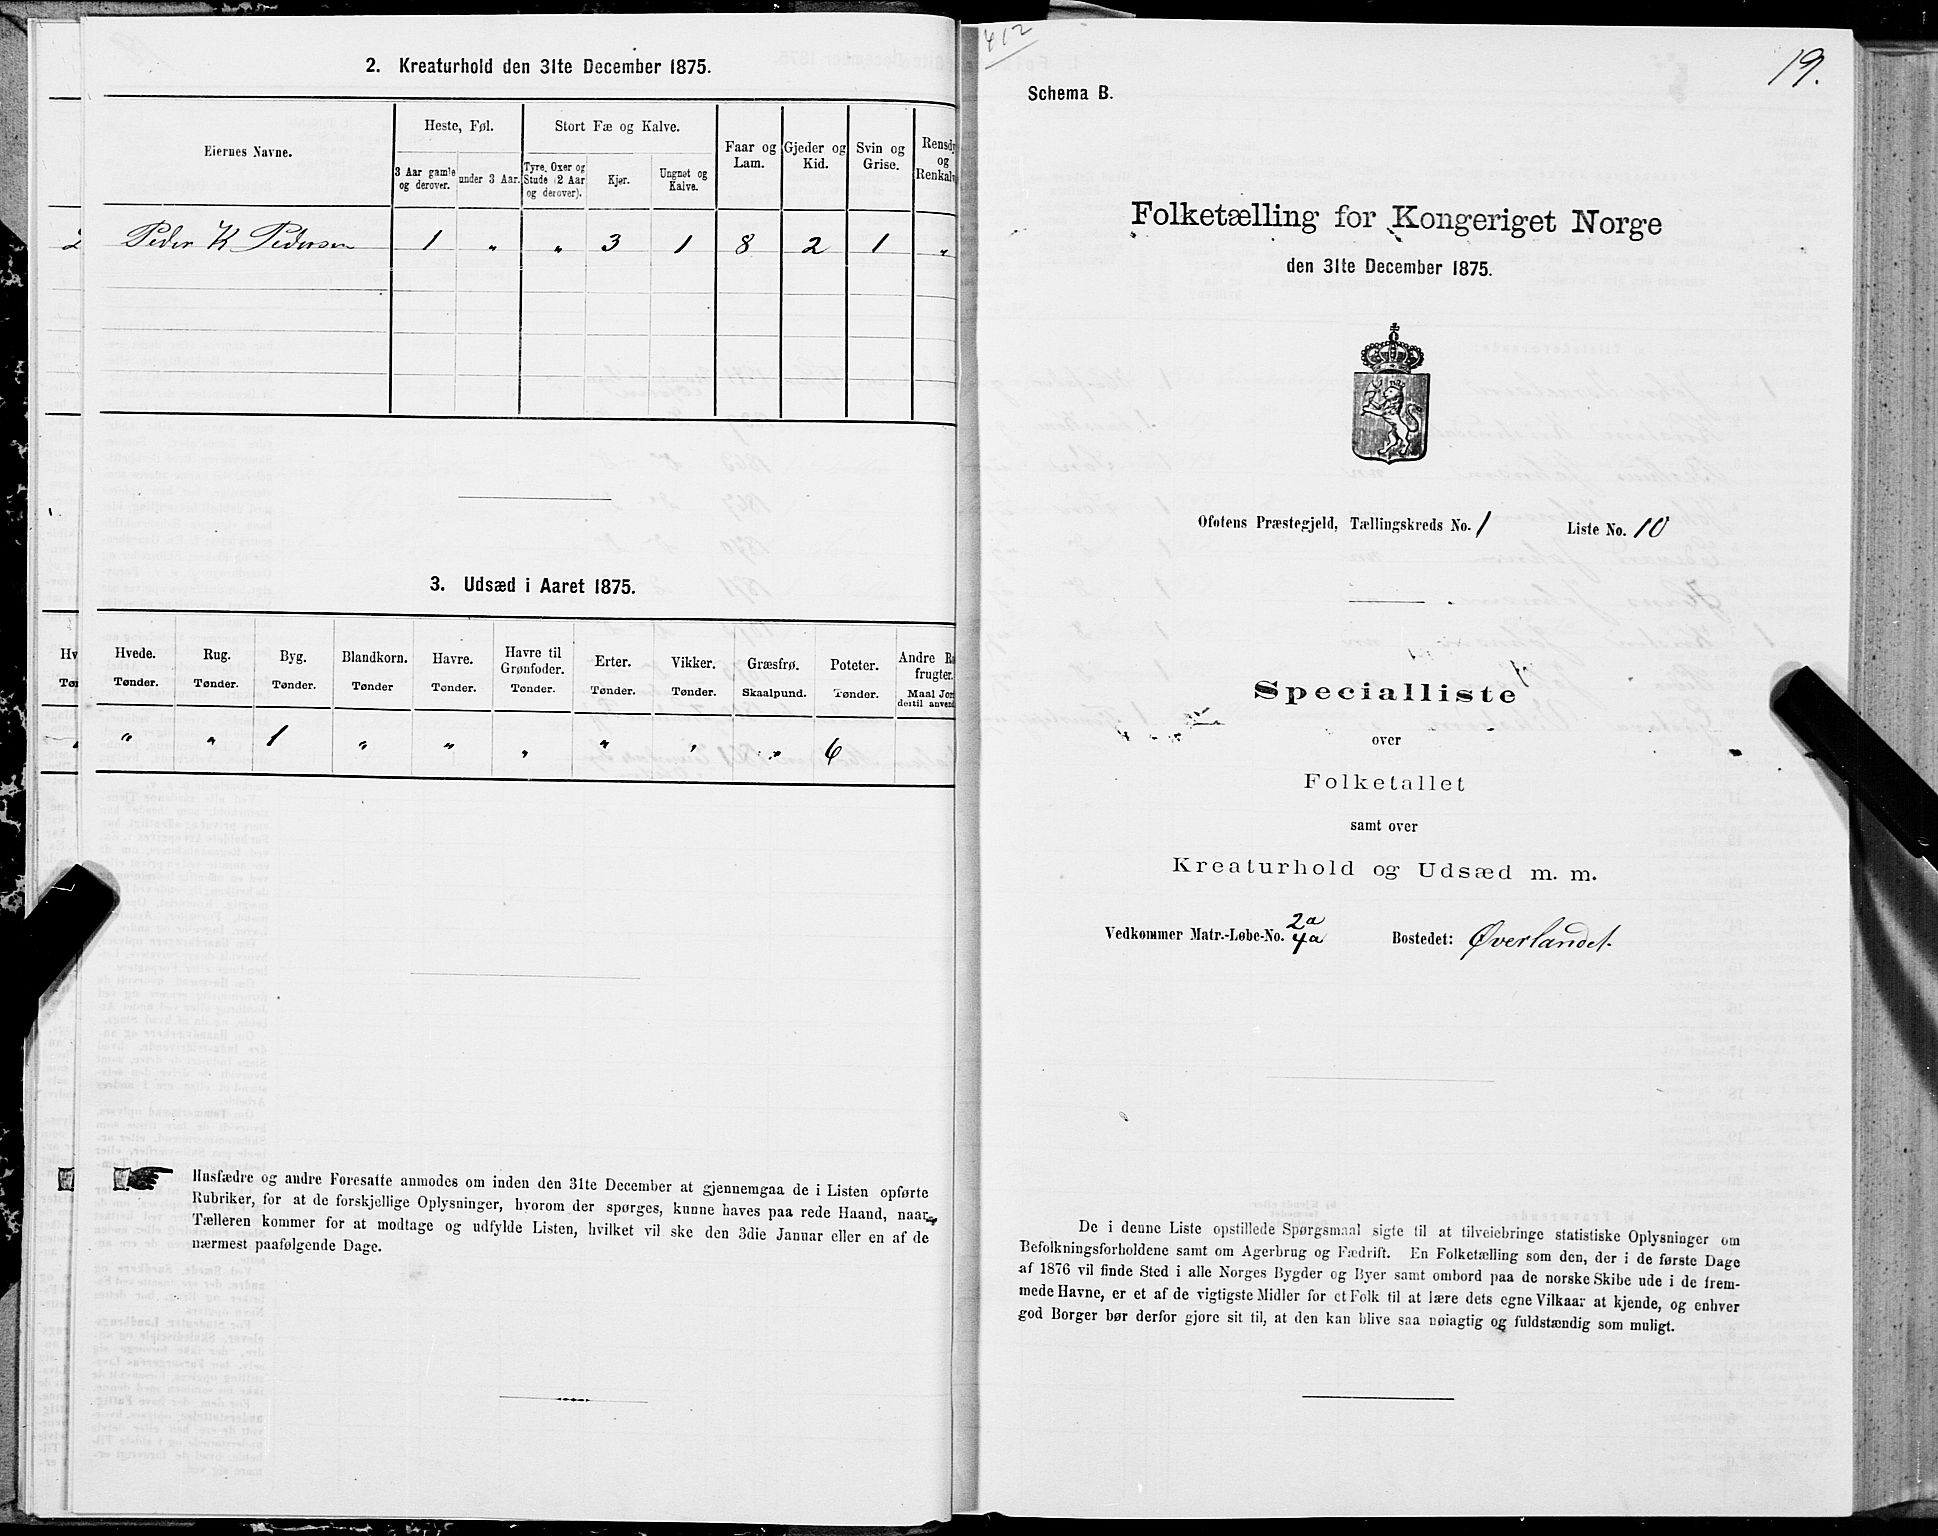 2. Kreaturhold den 31te December 1875.
Eiernes Navne.
Heste, Føl.
Stort Fæ og Kalve.
3 Aar gamle og derover.
under 3 Aar.
Tyre, Oxer og Stude (2 Aar og derover).
Kjør.
Ungnøt og Kalve.
Faar og Lam.
Gjeder og Kid.
Svin og Grise.
Rensd og Renkalv
2 Peder K Pedersen 1 " " 3 1 8 2 1 "
3. Udsæd i Aaret 1875.
Hvede. Tønder.
Rug. Tønder.
Byg. Tønder.
Blandkorn. Tønder
Havre. Tønder.
Havre til Grønfoder. Tønder.
Erter. Tønder.
Vikker. Tønder.
Græsfrø. Skaalpund.
Poteter. Tønder.
Andre Ro frugter.
Maal Jor dertil anvend
" " 1 " " " " " " 6
Husfædre og andre Foresatte anmodes om inden den 31te December at gjennemgaa de i Listen opførte
Rubriker, for at de forskjellige Oplysninger, hvorom der spørges, kunne haves paa rede Haand, naar
Tælleren kommer for at modtage og udfylde Listen, hvilket vil ske den 3die Januar eller en af de
nærmest paafølgende Dage.
412
19.
Schema B.
Folketælling for Kongeriget Norge
den 31te December 1875.
Ofotens Præstegjeld, Tællingskreds No. 1 Liste No. 10
Specialliste
over
Folketallet
samt over
Kreaturhold og Udsæd m. m.
Vedkommer Matr.-Løbe-No. 2a 4a Bostedet: Øverlandet.
De i denne Liste opstillede Spørgsmaal sigte til at tilveiebringe statistiske Oplysninger om
Befolkningsforholdene samt om Agerbrug og Fædrift. En Folketælling som den, der i de første Dage
af 1876 vil finde Sted i alle Norges Bygder og Byer samt ombord paa de norske Skibe ude i de frem-
mede Havne, er et af de vigtigste Midler for et Folk til at lære dets egne Vilkaar at kjende, og enhver
god Borger bør derfor gjøre sit til, at den kan blive saa nøiagtig og fuldstændig som muligt.